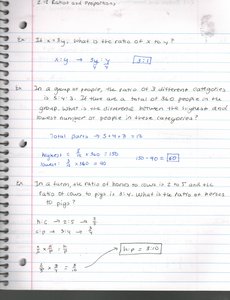 2.2 Ratios and Proportions
Ex: If x = 3y, what is the ratio of x to y?
x:y → 3y : y
3:1
Ex: In a group of people, the ratio of 3 different categories
is 5:4:3. If there are a total of 360 people in the
group, what is the difference between the highest and
lowest number of people in these categories?
Total parts → 5+4+3 = 12
highest: 5/12 × 360 = 150
lowest: 3/12 × 360 = 90
150 - 90 = 60
Ex: In a farm, the ratio of horses to cows is 2 to 5 and the
ratio of cows to pigs is 3:4. What is the ratio of horses
to pigs?
h:c → 2:5 → 2/5
c:p → 3:4 → 3/4
h/c × c/p = h/p
h:p = 3:10
2/5 × 3/4 = 3/10